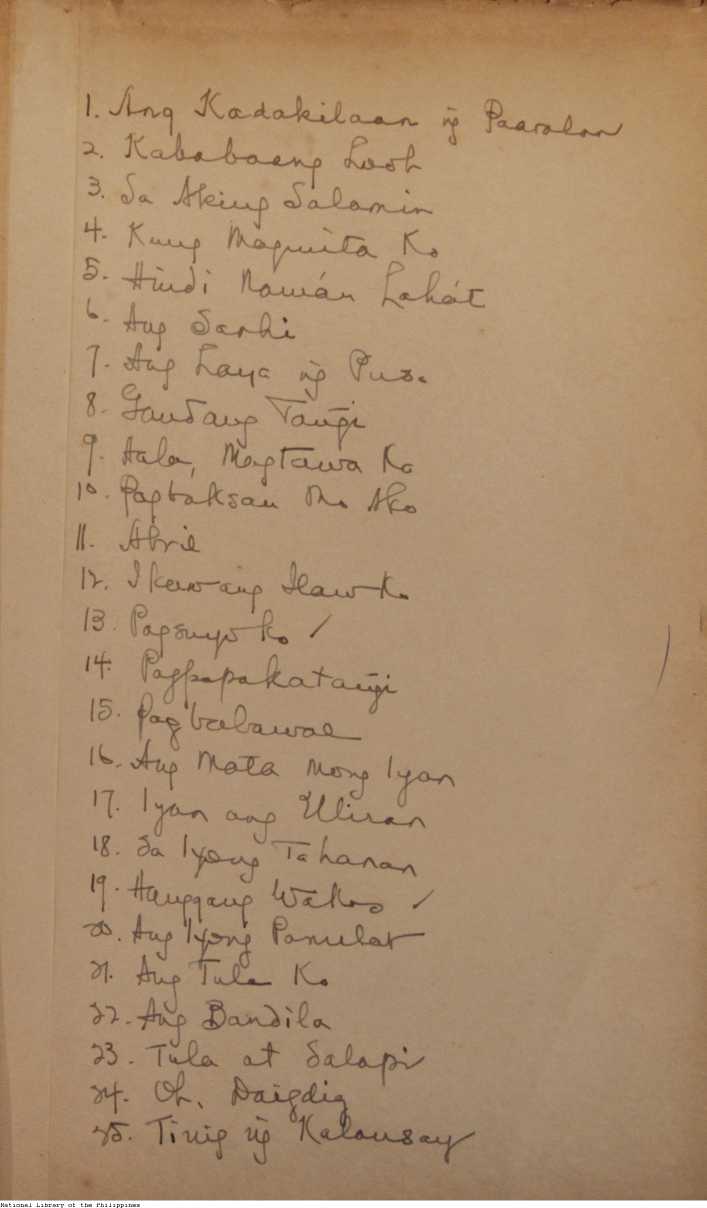 1. Ang Kadakilaan ng̃ Paaralan
2. Kababaang Loob
3. Sa Aking Salamin
4. Kung Magunita Ko
5. Hindi Namán Lahát
6. Ang Sarhi
7. Ang Laya ng̃ Puso
8. Gandang Tang̃i
9. Hala, Magtawa Ka
10. Pagtaksan Mo Ako
11. Abril
12. Ikaw ang Ilaw Ko
13. Pagsuyo ko ✓
14. Pagpapakatang̃i
15. Pagbabawal
16. Ang Mata Mong Iyan
17. Iyan ang Uliran
18. Sa Iyong Tahanan
19. Hanggang Wakas ✓
20. Ang Iyong Panulat
21. Ang Tula Ko
22. Ang Bandila
23. Tula at Salapi
24. Oh, Daigdig
25. Tinig ng̃ Kalansay
National Library of the Philippines